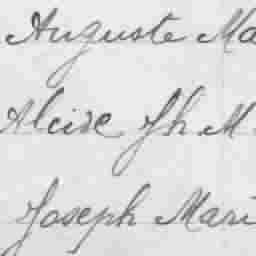 Auguste Ma
Alcide Jh M
Joseph Mari